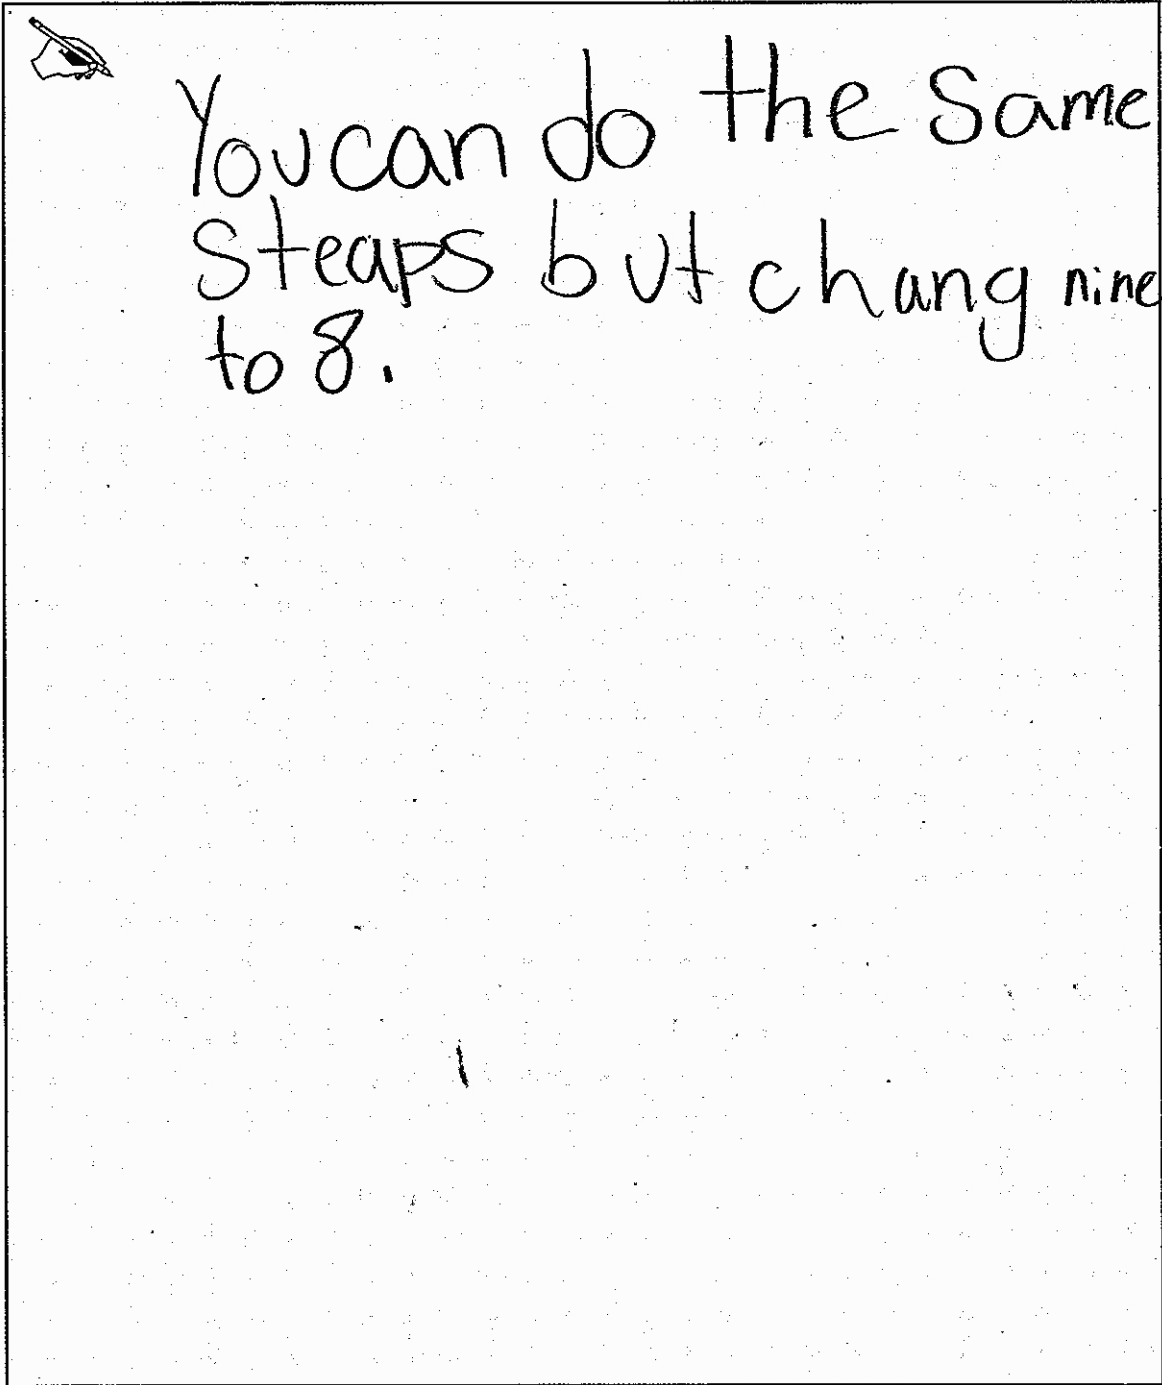 You can do the Same
Steaps but chang nine
to 8.